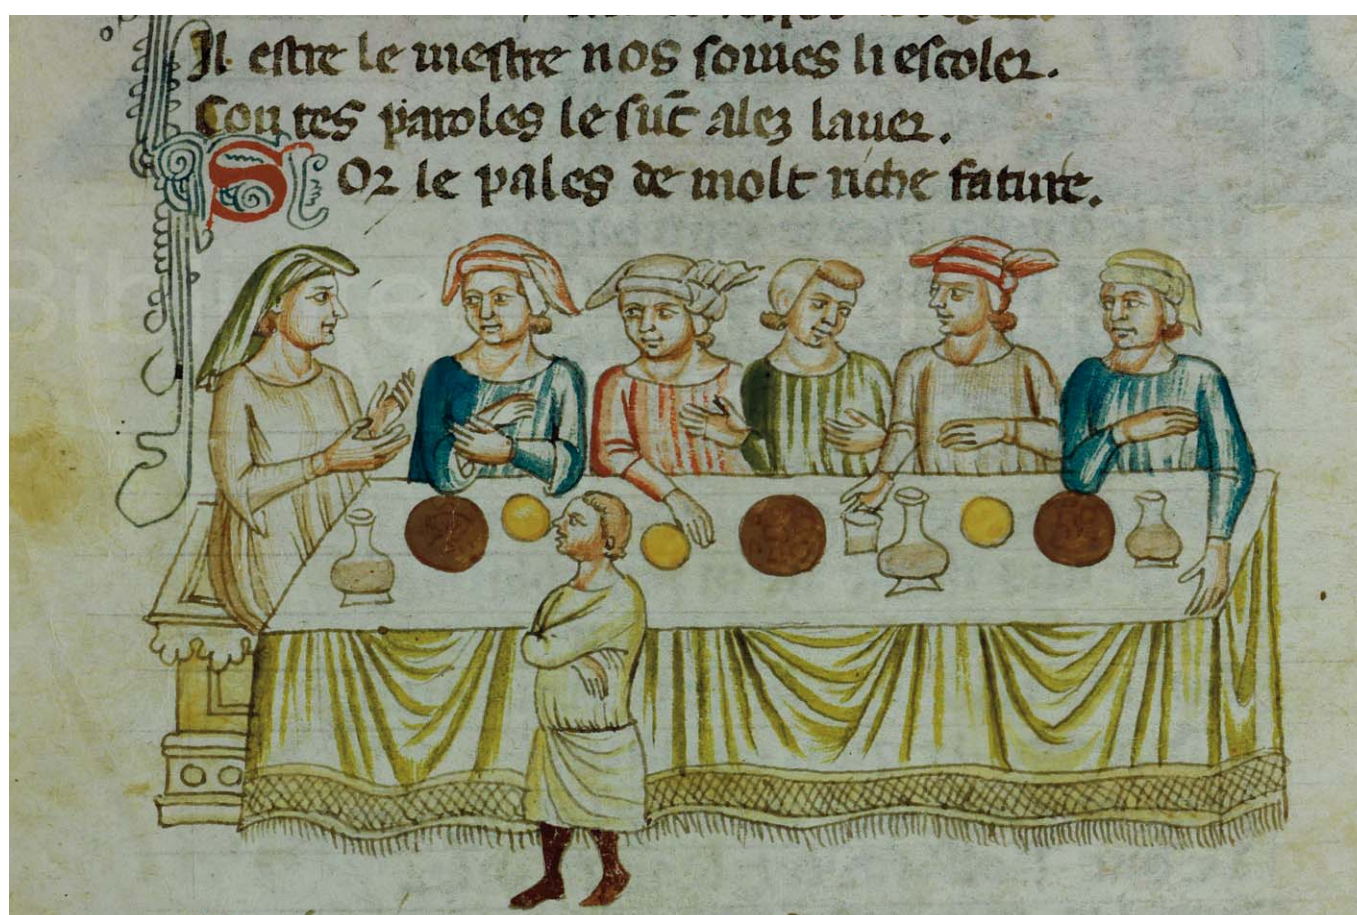 Il estre le mestre nos somes li escoler.
Con tes paroles le suc̄ alez lauer.
Sor le pales de molt riche fature.